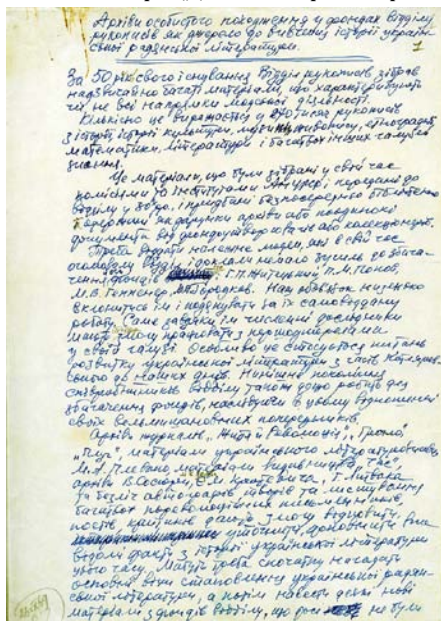 Архіви особистого походження у фондах Відділу
рукописів як джерело до вивчення історії україн-
ської радянської літератури.
1
За 50 років свого існування Відділ рукописів зібрав
надзвичайно багаті матеріали, що характеризують
чи не всі напрямки
Кількісно це виражається у
з історії культури, живопису, етнографії
математики, літератури і багатьох інших галузей
знання.
Це матеріали, що були зібрані у свій час
комісіями та інститутами і передані до
відділу і придбані безпосередньо бібліотекою
одержані як дарунки архіви або поодинокі
документи від або колекціонерів.
Треба віддати належне людям, які в свій час
очолювали Відділ і доклали немало зусиль до збіль-
чення фондів Г.П. Житецький, П.М. Попов,
М.В. Геппенер, Наш обов'язок низенько
вклонитись їм і подякувати за їх самовіддану
роботу. Саме завдяки їм численні дослідники
мають змогу працювати з першоджерелами
у своїй галузі. Особливо це стосується питань
розвитку української літератури з часів Котлярев-
ського до наших днів. Нинішнє покоління
співробітників відділу також дещо робить для
збагачення фондів, наслідуючи в цьому відношенні
своїх вельмишановних попередників.
Архіви журналів „Життя й Революція", „Гроно",
„Плуг", матеріали українського літературознавця
М.А. Плевако, матеріали видавництва „Час",
архіви В. Сосюри, Є.М. Кротевича,
автографів творів та листування
багатьох письменників,
поетів, критиків дають змогу відновити,
уточнити, доповнити
відомі факти з історії української літератури
цього часу. Мабуть треба спочатку нагадати
основні віхи становлення української радян-
ської літератури, а потім навести деякі нові
матеріали з фондів відділу, що не були